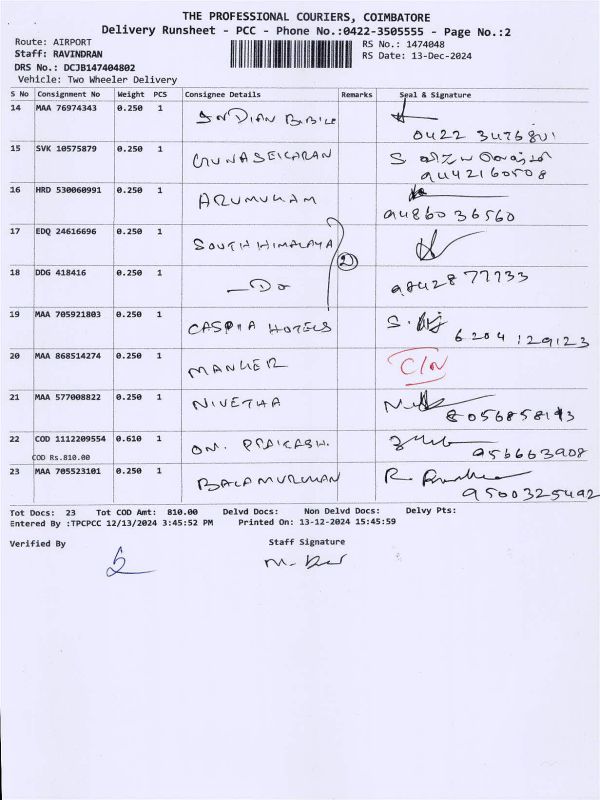 THE PROFESSIONAL COURIERS, COIMBATORE
Delivery Runsheet - PCC - Phone No.:0422-3505555 - Page No.:2
Route: AIRPORT RS No.: 1474048
Staff: RAVINDRAN RS Date: 13-Dec-2024
DRS No.: DCJB147404802
Vehicle: Two Wheeler Delivery
S No Consignment No Weight PCS Consignee Details Remarks Seal & Signature
14 MAA 76974343 0.250 1 INDIAN BIBLE
0422 3476801
15 SVK 10575879 0.250 1 GUNASEKARAN S
9442160508
16 HRD 530060991 0.250 1 ARUMUGAM
9486036560
17 EDQ 24616696 0.250 1 SOUTH HIMALAYA
2
18 DDG 418416 0.250 1 —Do 9842877733
19 MAA 705921803 0.250 1 CASPIA HOTELS S.
6204129123
20 MAA 868514274 0.250 1 C/N
21 MAA 577008822 0.250 1 NIVETHA
8056858193
22 COD 1112209554 0.610 1 OM. PRAKASH.
COD Rs.810.00 956663908
23 MAA 705523101 0.250 1 BALAMURUGAN R.
9500325492
Tot Docs: 23 Tot COD Amt: 810.00 Delvd Docs: Non Delvd Docs: Delvy Pts:
Entered By :TPCPCC 12/13/2024 3:45:52 PM Printed On: 13-12-2024 15:45:59
Verified By Staff Signature